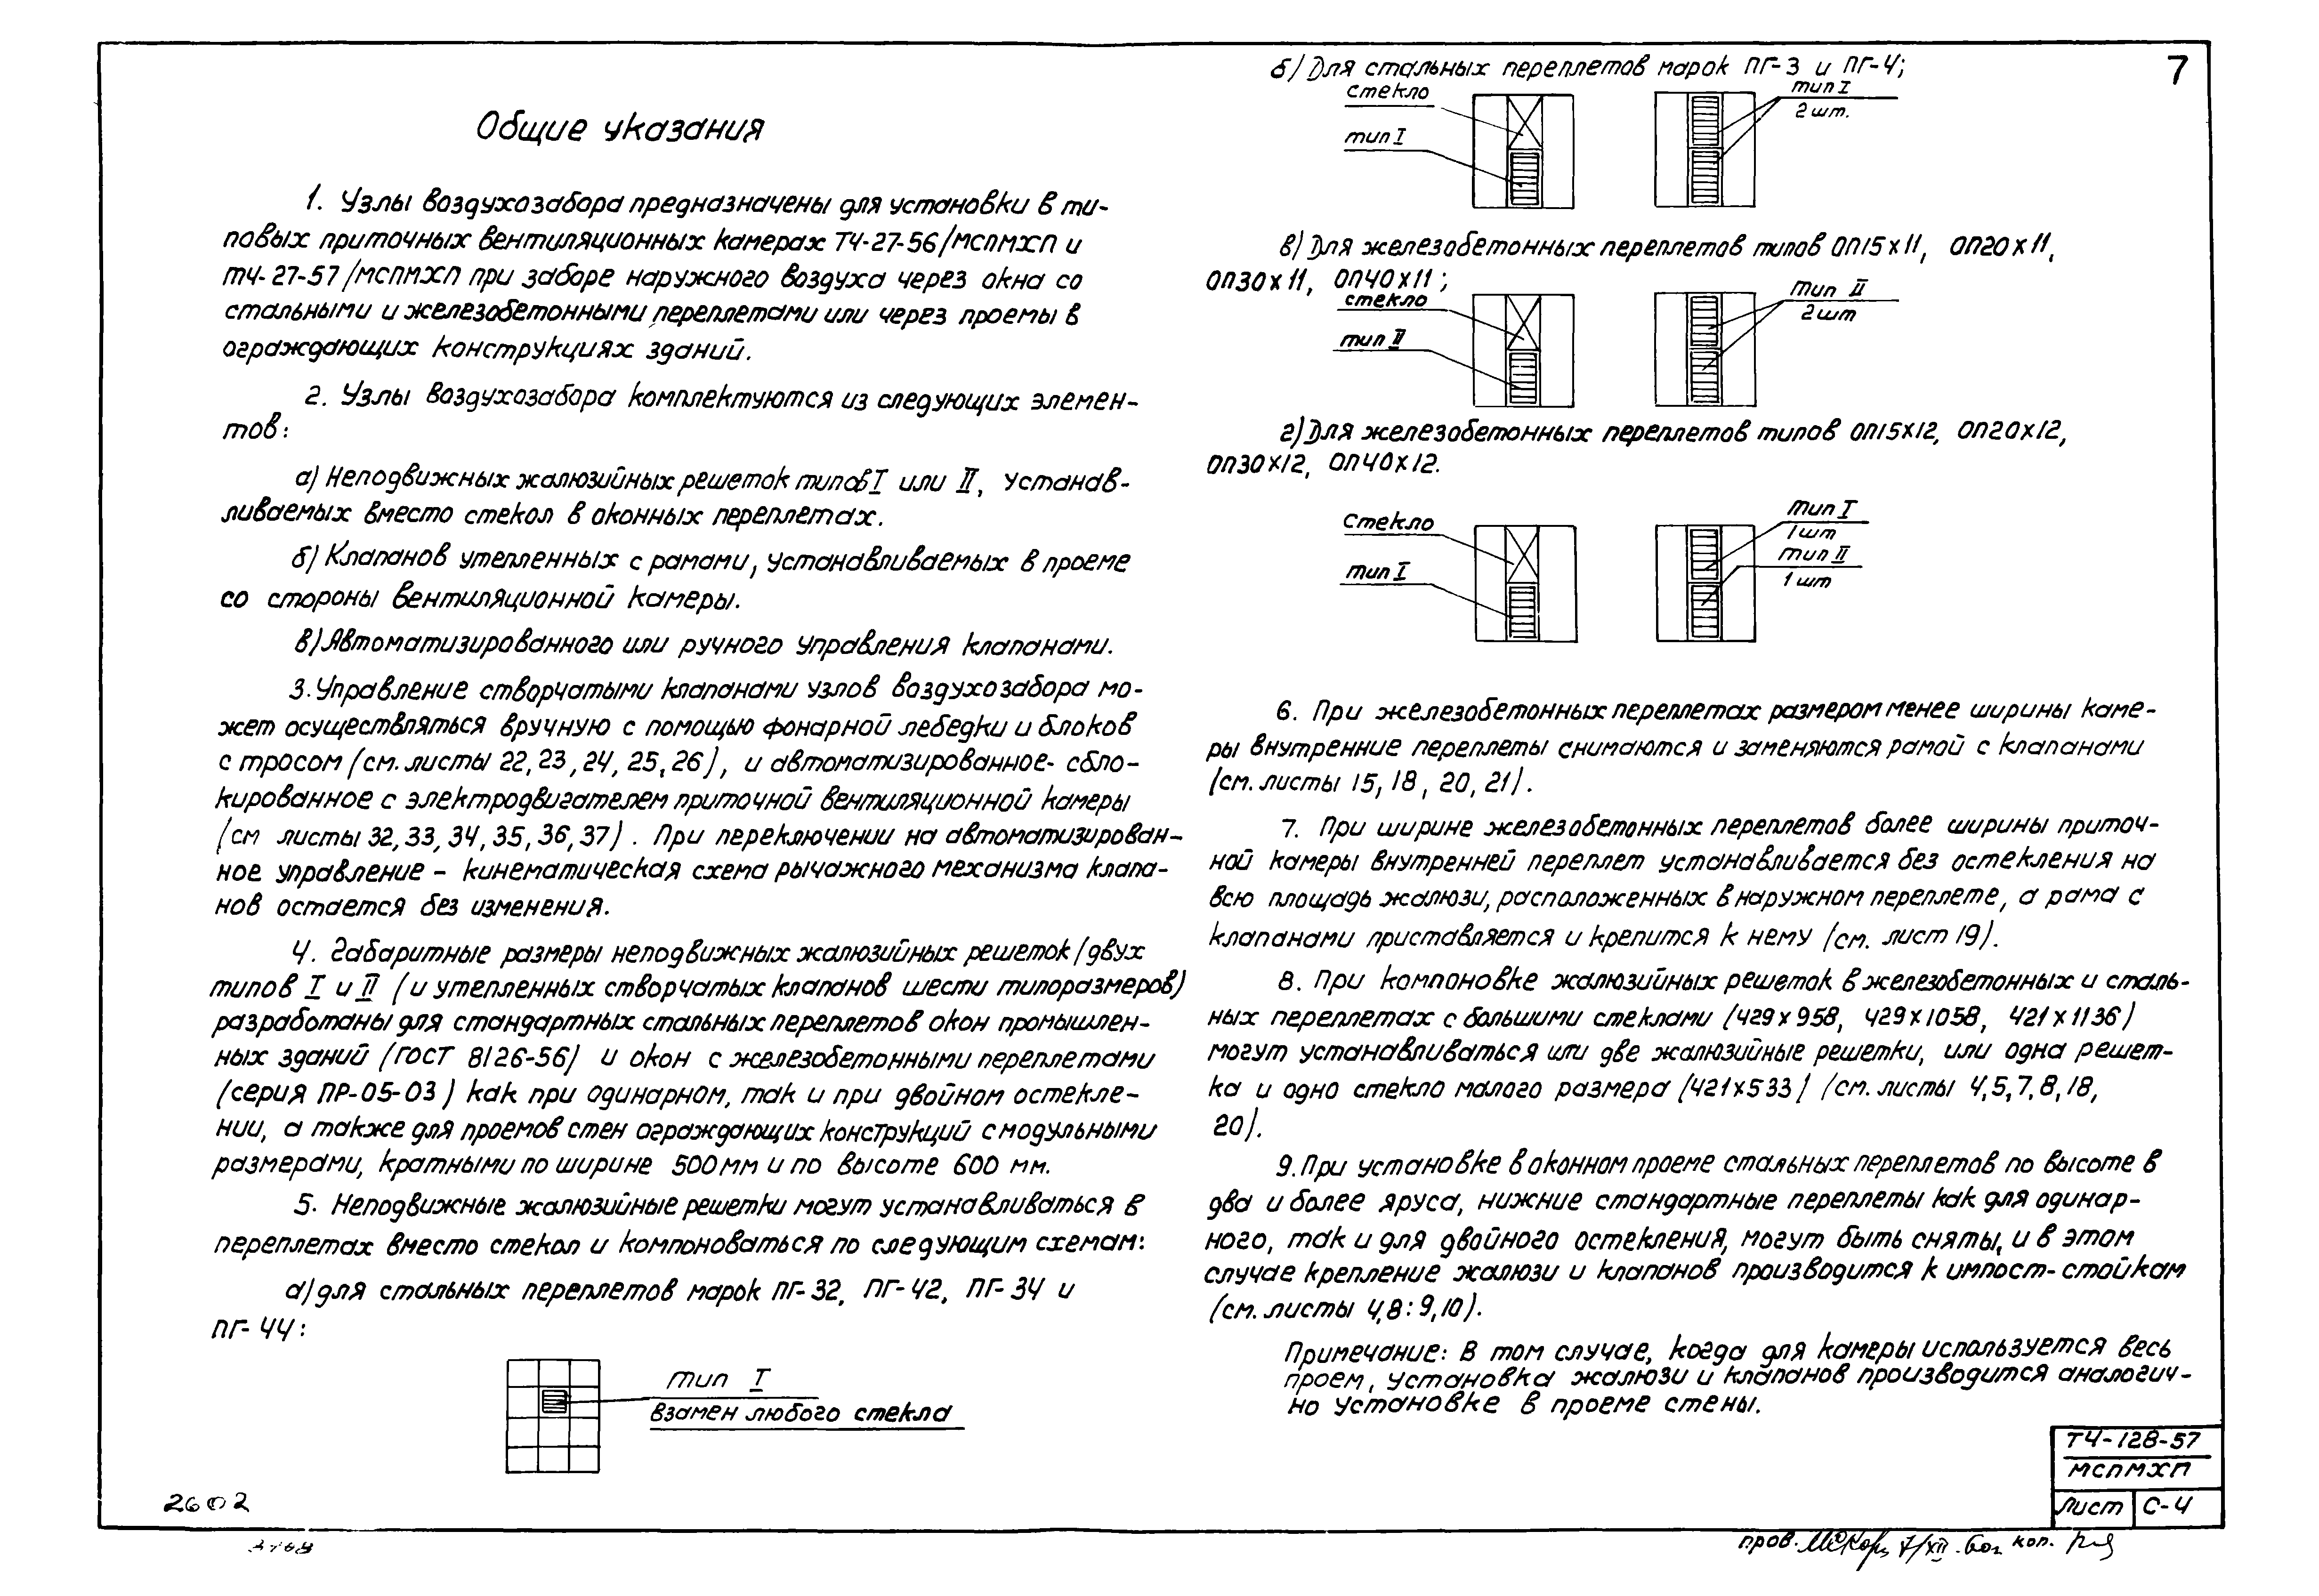 7
Общие указания
1. Узлы воздухозабора предназначены для установки в ти-
повых приточных вентиляционных камерах Т4-27-56/МСПМХП и
Т4-27-57/МСПМХП при заборе наружного воздуха через окна со
стальными и железобетонными переплетами или через проемы в
ограждающих конструкциях зданий.
2. Узлы воздухозабора комплектуются из следующих элемен-
тов:
а) Неподвижных жалюзийных решеток типов I или II, устанав-
ливаемых вместо стекол в оконных переплетах.
б) Клапанов утепленных с рамами, устанавливаемых в проеме
со стороны вентиляционной камеры.
в) Автоматизированного или ручного управления клапанами.
3. Управление створчатыми клапанами узлов воздухозабора мо-
жет осуществляться вручную с помощью фонарной лебедки и блоков
с тросом (см. листы 22, 23, 24, 25, 26), и автоматизированное- сбло-
кированное с электродвигателем приточной вентиляционной камеры
(см листы 32, 33, 34, 35, 36, 37). При переключении на автоматизирован-
ное управление – кинематическая схема рычажного механизма клапа-
нов остается без изменения.
4. Габаритные размеры неподвижных жалюзийных решеток /двух
типов I и II (и утепленных створчатых клапанов шести типоразмеров)
разработаны для стандартных стальных переплетов окон промышлен-
ных зданий (ГОСТ 8126-56) и окон с железобетонными переплетами
(серия ПР-05-03) как при одинарном, так и при двойном остекле-
нии, а также для проемов стен ограждающих конструкций с модульными
размерами, кратными по ширине 500 мм и по высоте 600 мм.
5. Неподвижные жалюзийные решетки могут устанавливаться в
переплетах вместо стекол и компоноваться по следующим схемам:
а) для стальных переплетов марок ПГ-32, ПГ-42, ПГ-34 и
ПГ-44:
тип I
взамен любого стекла
б) Для стальных переплетов марок ПГ-3 и ПГ-4;
стекло
тип I
тип I
2 шт.
в) Для железобетонных переплетов типов ОП15х11, ОП20х11,
ОП30х11, ОП40х11;
стекло
тип II
тип II
2 шт
г) Для железобетонных переплетов типов ОП15х12, ОП20х12,
ОП30х12, ОП40х12.
Стекло
тип I
тип I
1 шт
тип II
1 шт
6. При железобетонных переплетах размером менее ширины каме-
ры внутренние переплеты снимаются и заменяются рамой с клапанами
(см. листы 15, 18, 20, 21).
7. При ширине железобетонных переплетов более ширины приточ-
ной камеры внутренней переплет устанавливается без остекления на
всю площадь жалюзи, расположенных в наружном переплете, а рама с
клапанами приставляется и крепится к нему (см. лист 19).
8. При компоновке жалюзийных решеток в железобетонных и сталь-
ных переплетах с большими стеклами (429х958, 429х1058, 421х1136)
могут устанавливаться или две жалюзийные решетки, или одна решет-
ка и одно стекло малого размера (421х533) (см. листы 4,5,7,8,18,
20).
9. При установке в оконном проеме стальных переплетов по высоте в
два и более яруса, нижние стандартные переплеты как для одинар-
ного, так и для двойного остекления, могут быть сняты, и в этом
случае крепление жалюзи и клапанов производится к импост-стойкам
(см. листы 4,8:9,10).
Примечание: В том случае, когда для камеры используется весь
проем, установка жалюзи и клапанов производится аналогич-
но установке в проеме стены.
Т4-128-57
МСПМХП
Лист С-4
2602
пров. 7/XII коп.